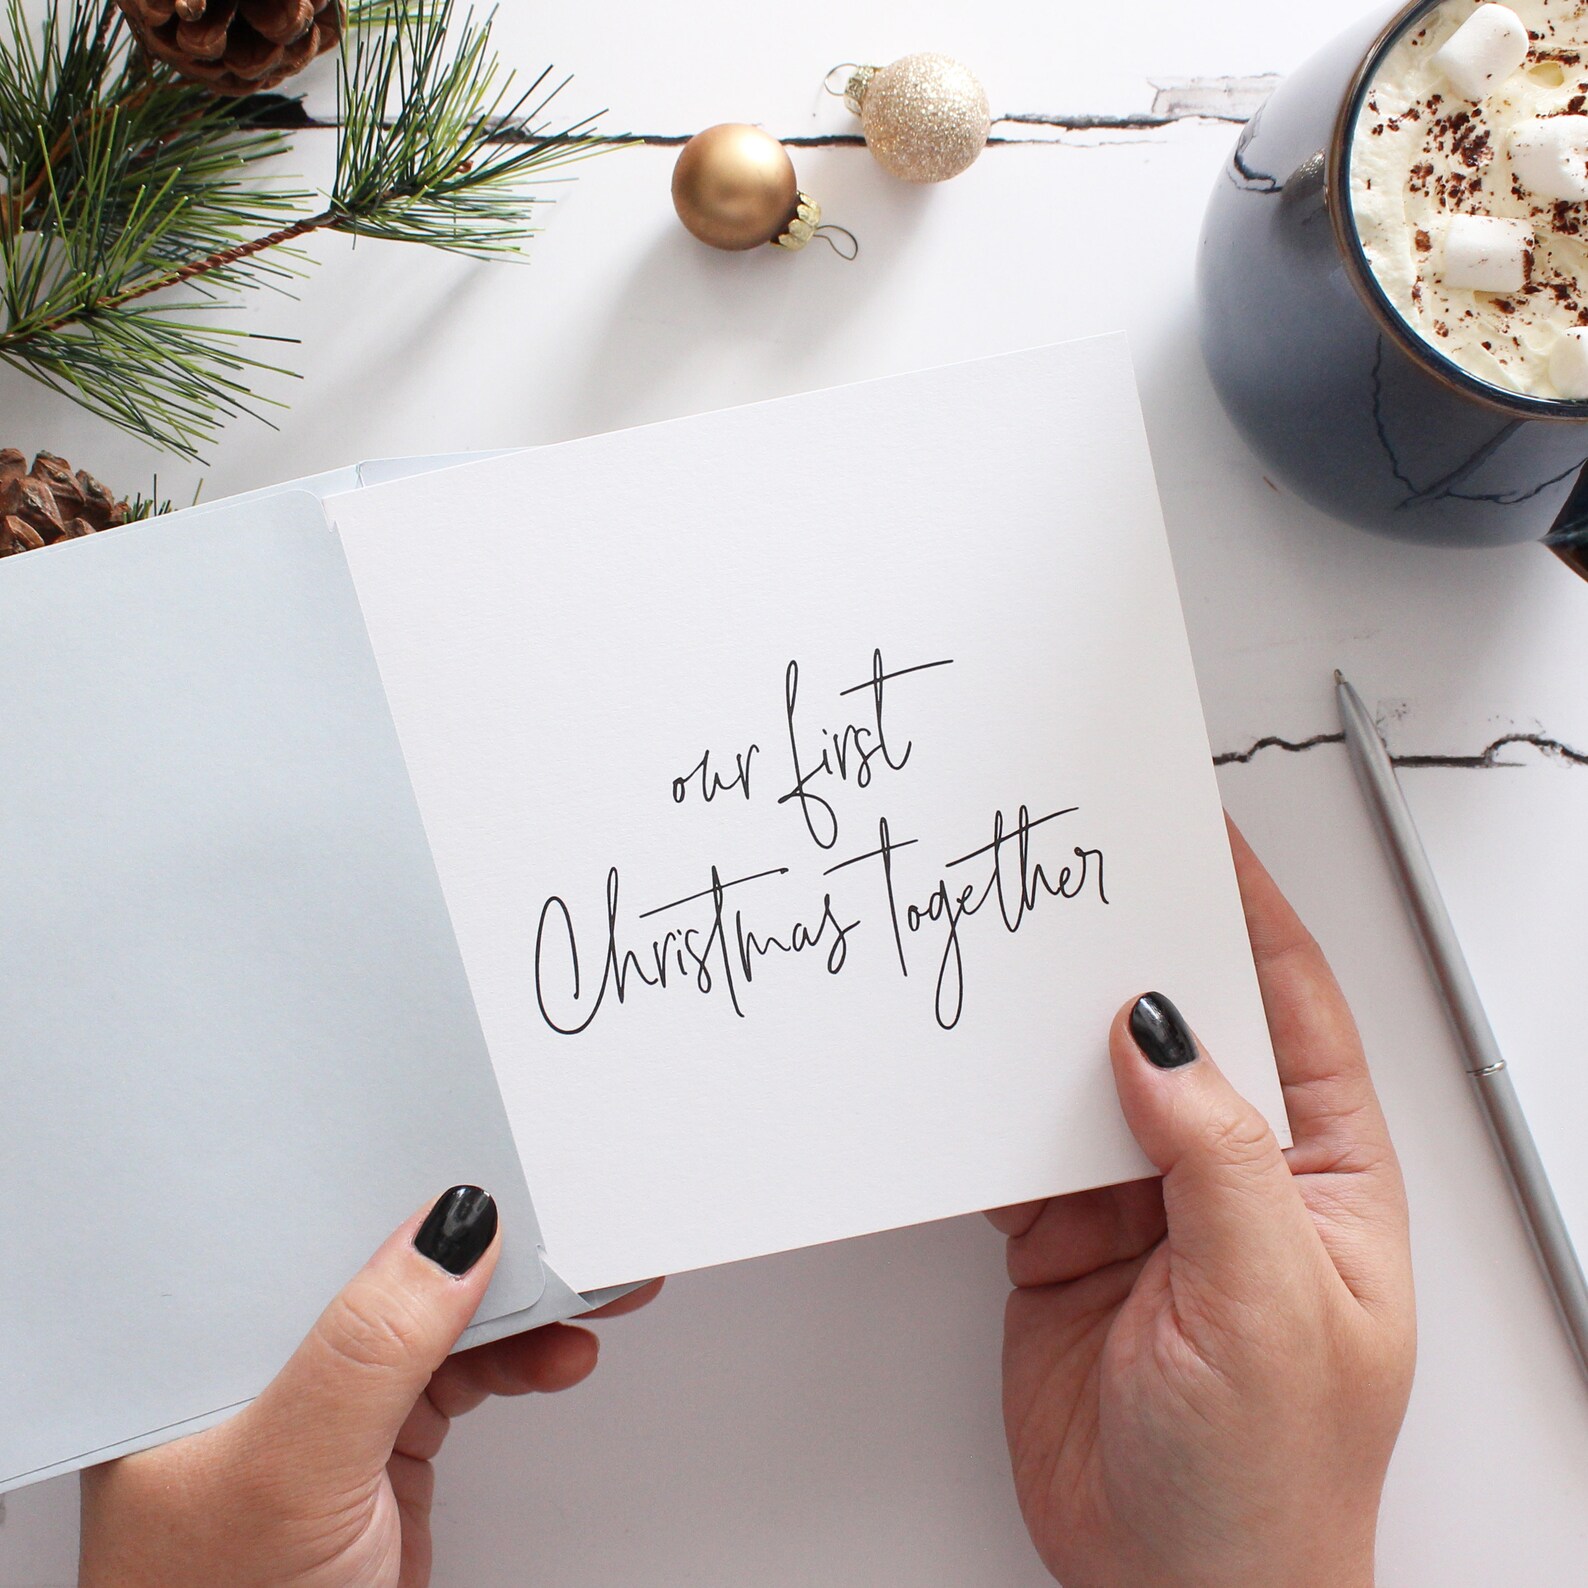 our first
Christmas together